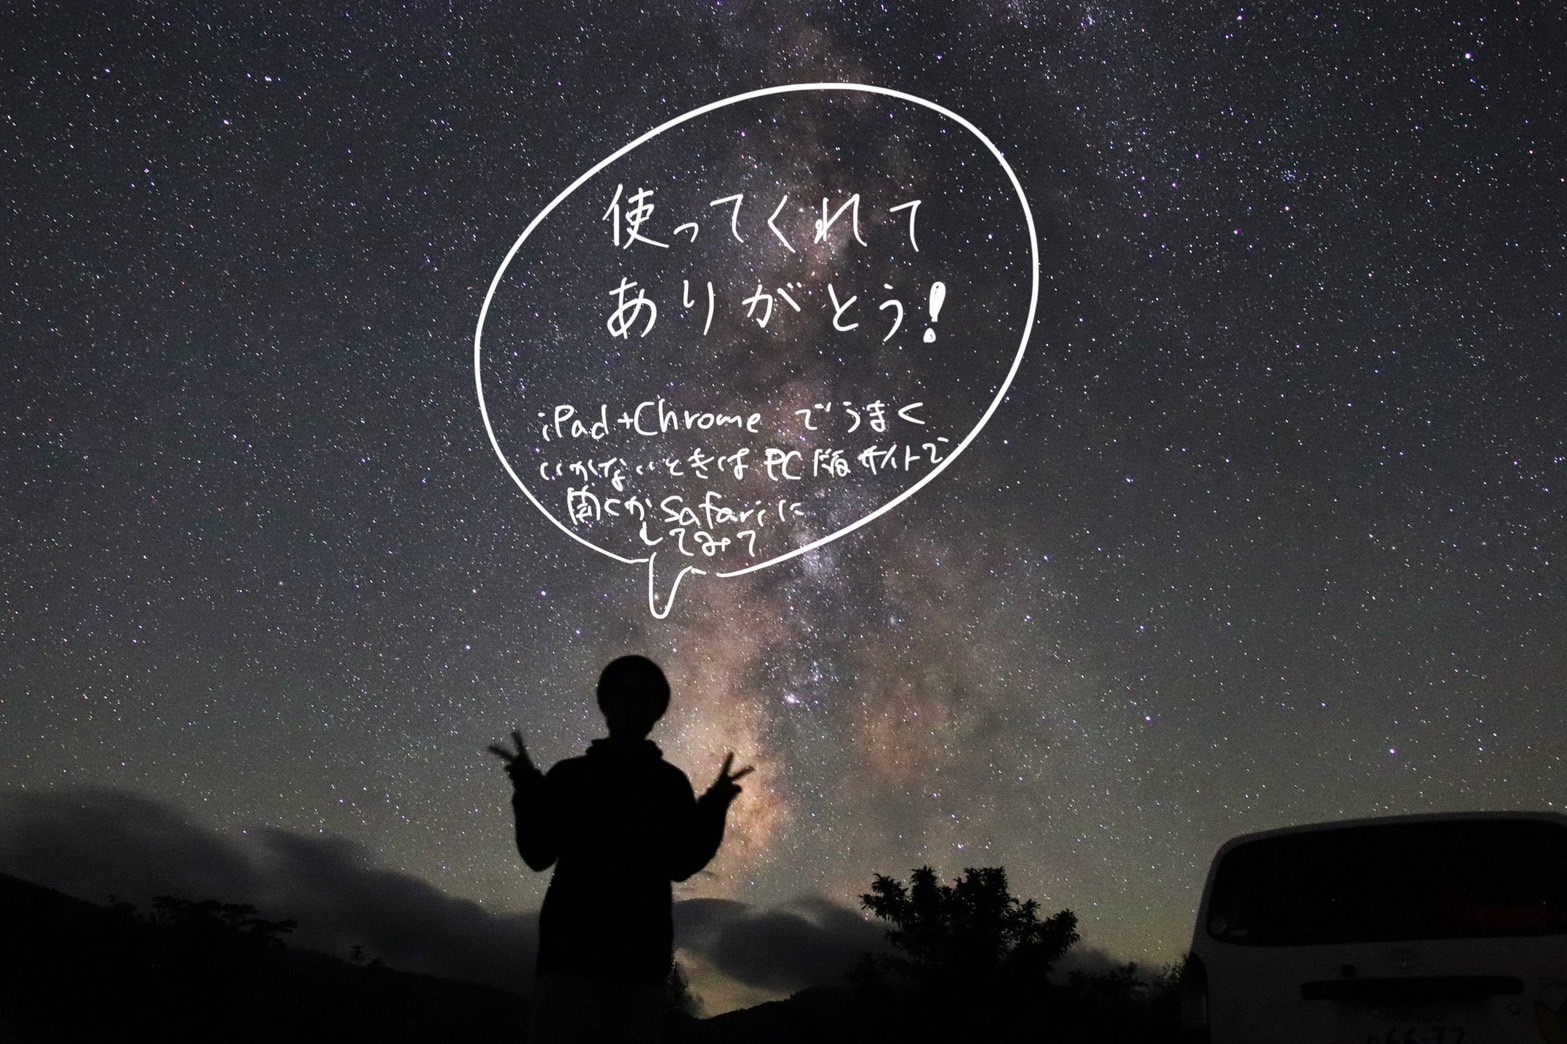 使ってくれて
ありがとう!
iPad+Chrome でうまく
いかないときは PC版サイトで
開くか Safariに
してみて
66-72